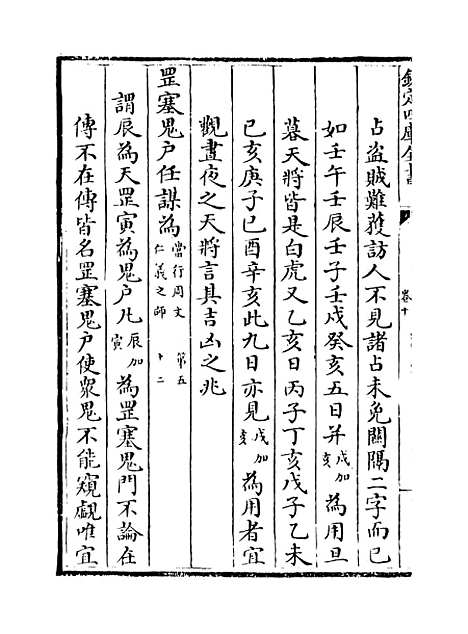 欽定四庫全書
卷十
占盗賊難獲訪人不見諸占未免關隔二字而已
如壬午壬辰壬子壬戌癸亥五日并戌加亥為用旦
暮天將皆是白虎又乙亥日丙子丁亥戊子乙未
己亥庚子己酉辛亥此九日亦見戌加亥為用者宜
觀晝夜之天將言其吉凶之兆
罡塞鬼戶任謀為當行周文仁義之師 第五十二
謂辰為天罡寅為鬼戶凡辰加寅為罡塞鬼門不論在
傳不在傳皆名罡塞鬼戶使衆鬼不能窺覷唯宜